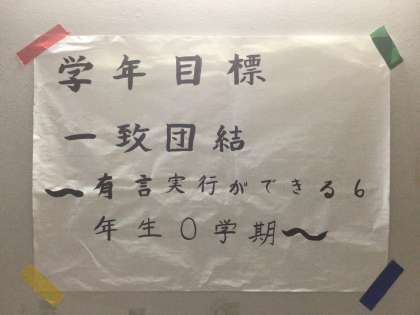 学年目標
一致団結
〜有言実行ができる6
年生〇学期〜